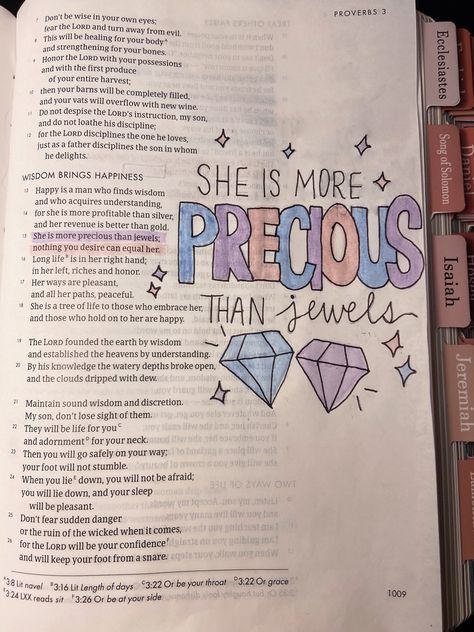 PROVERBS 3
7 Don't be wise in your own eyes;
fear the LORD and turn away from evil.
8 This will be healing for your body^A
and strengthening for your bones.
9 Honor the LORD with your possessions
and with the first produce
of your entire harvest;
10 then your barns will be completely filled,
and your vats will overflow with new wine.
11 Do not despise the LORD's instruction, my son,
and do not loathe his discipline;
12 for the LORD disciplines the one he loves,
just as a father disciplines the son in whom
he delights.
WISDOM BRINGS HAPPINESS
13 Happy is a man who finds wisdom
and who acquires understanding,
14 for she is more profitable than silver,
and her revenue is better than gold.
15 She is more precious than jewels;
nothing you desire can equal her.
16 Long life^B is in her right hand;
in her left, riches and honor.
17 Her ways are pleasant,
and all her paths, peaceful.
18 She is a tree of life to those who embrace her,
and those who hold on to her are happy.
19 The LORD founded the earth by wisdom
and established the heavens by understanding.
20 By his knowledge the watery depths broke open,
and the clouds dripped with dew.
21 Maintain sound wisdom and discretion.
My son, don't lose sight of them.
22 They will be life for you^C
and adornment^D for your neck.
23 Then you will go safely on your way;
your foot will not stumble.
24 When you lie^E down, you will not be afraid;
you will lie down, and your sleep
will be pleasant.
25 Don't fear sudden danger
or the ruin of the wicked when it comes,
26 for the LORD will be your confidence^F
and will keep your foot from a snare.
^A3:8 Lit navel ^B3:16 Lit Length of days ^C3:22 Or be your throat ^D3:22 Or grace
^E3:24 LXX reads sit ^F3:26 Or be at your side
1009
SHE IS MORE
PRECIOUS
THAN jewels
Ecclesiastes
Song of Solomon
Isaiah
Jeremiah